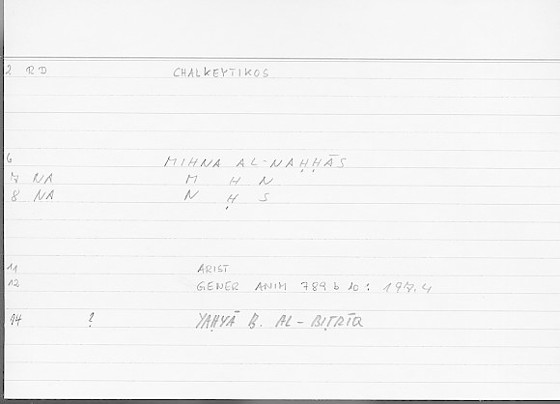 2 RD CHALKEYTIKOS
6 MIHNA AL-NAḤḤĀS
7 NA M H N
8 NA N Ḥ S
11 ARIST
12 GENER ANIM 789 b 10 : 197.4
94 ? YAḤYĀ B. AL-BIṬRĪQ